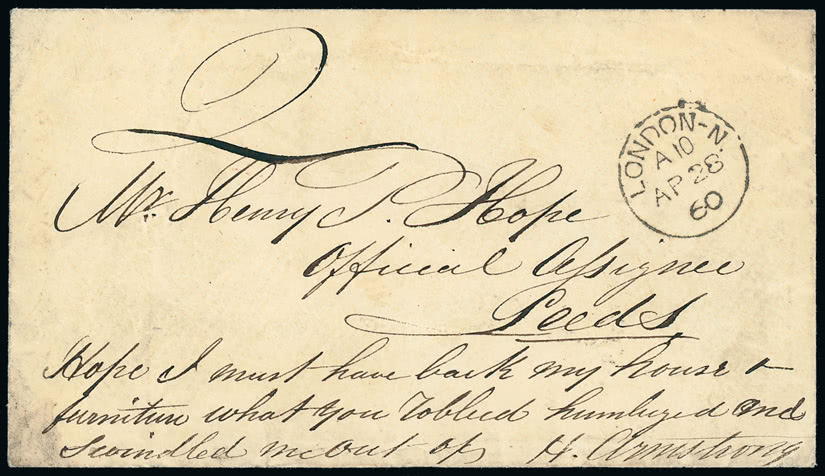 2
LONDON-N.
A 10
AP 28
60
Mr. Henry P. Hope
Official Assignee
Leeds
Hope I must have back my house &
furniture what you robbed humbuged and
swindled me out of H. Armstrong